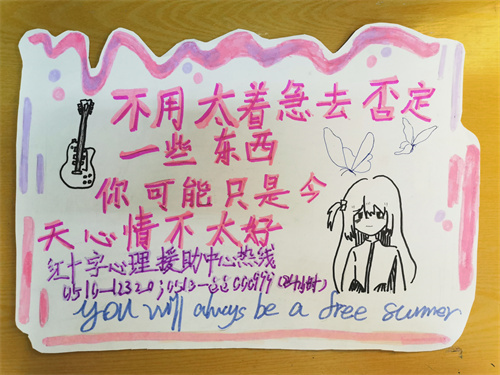 不用太着急去否定
一些东西
你可能只是今
天心情不太好
红十字心理援助中心热线
0510-12320;0513-
(24小时)
you will always be a free summer